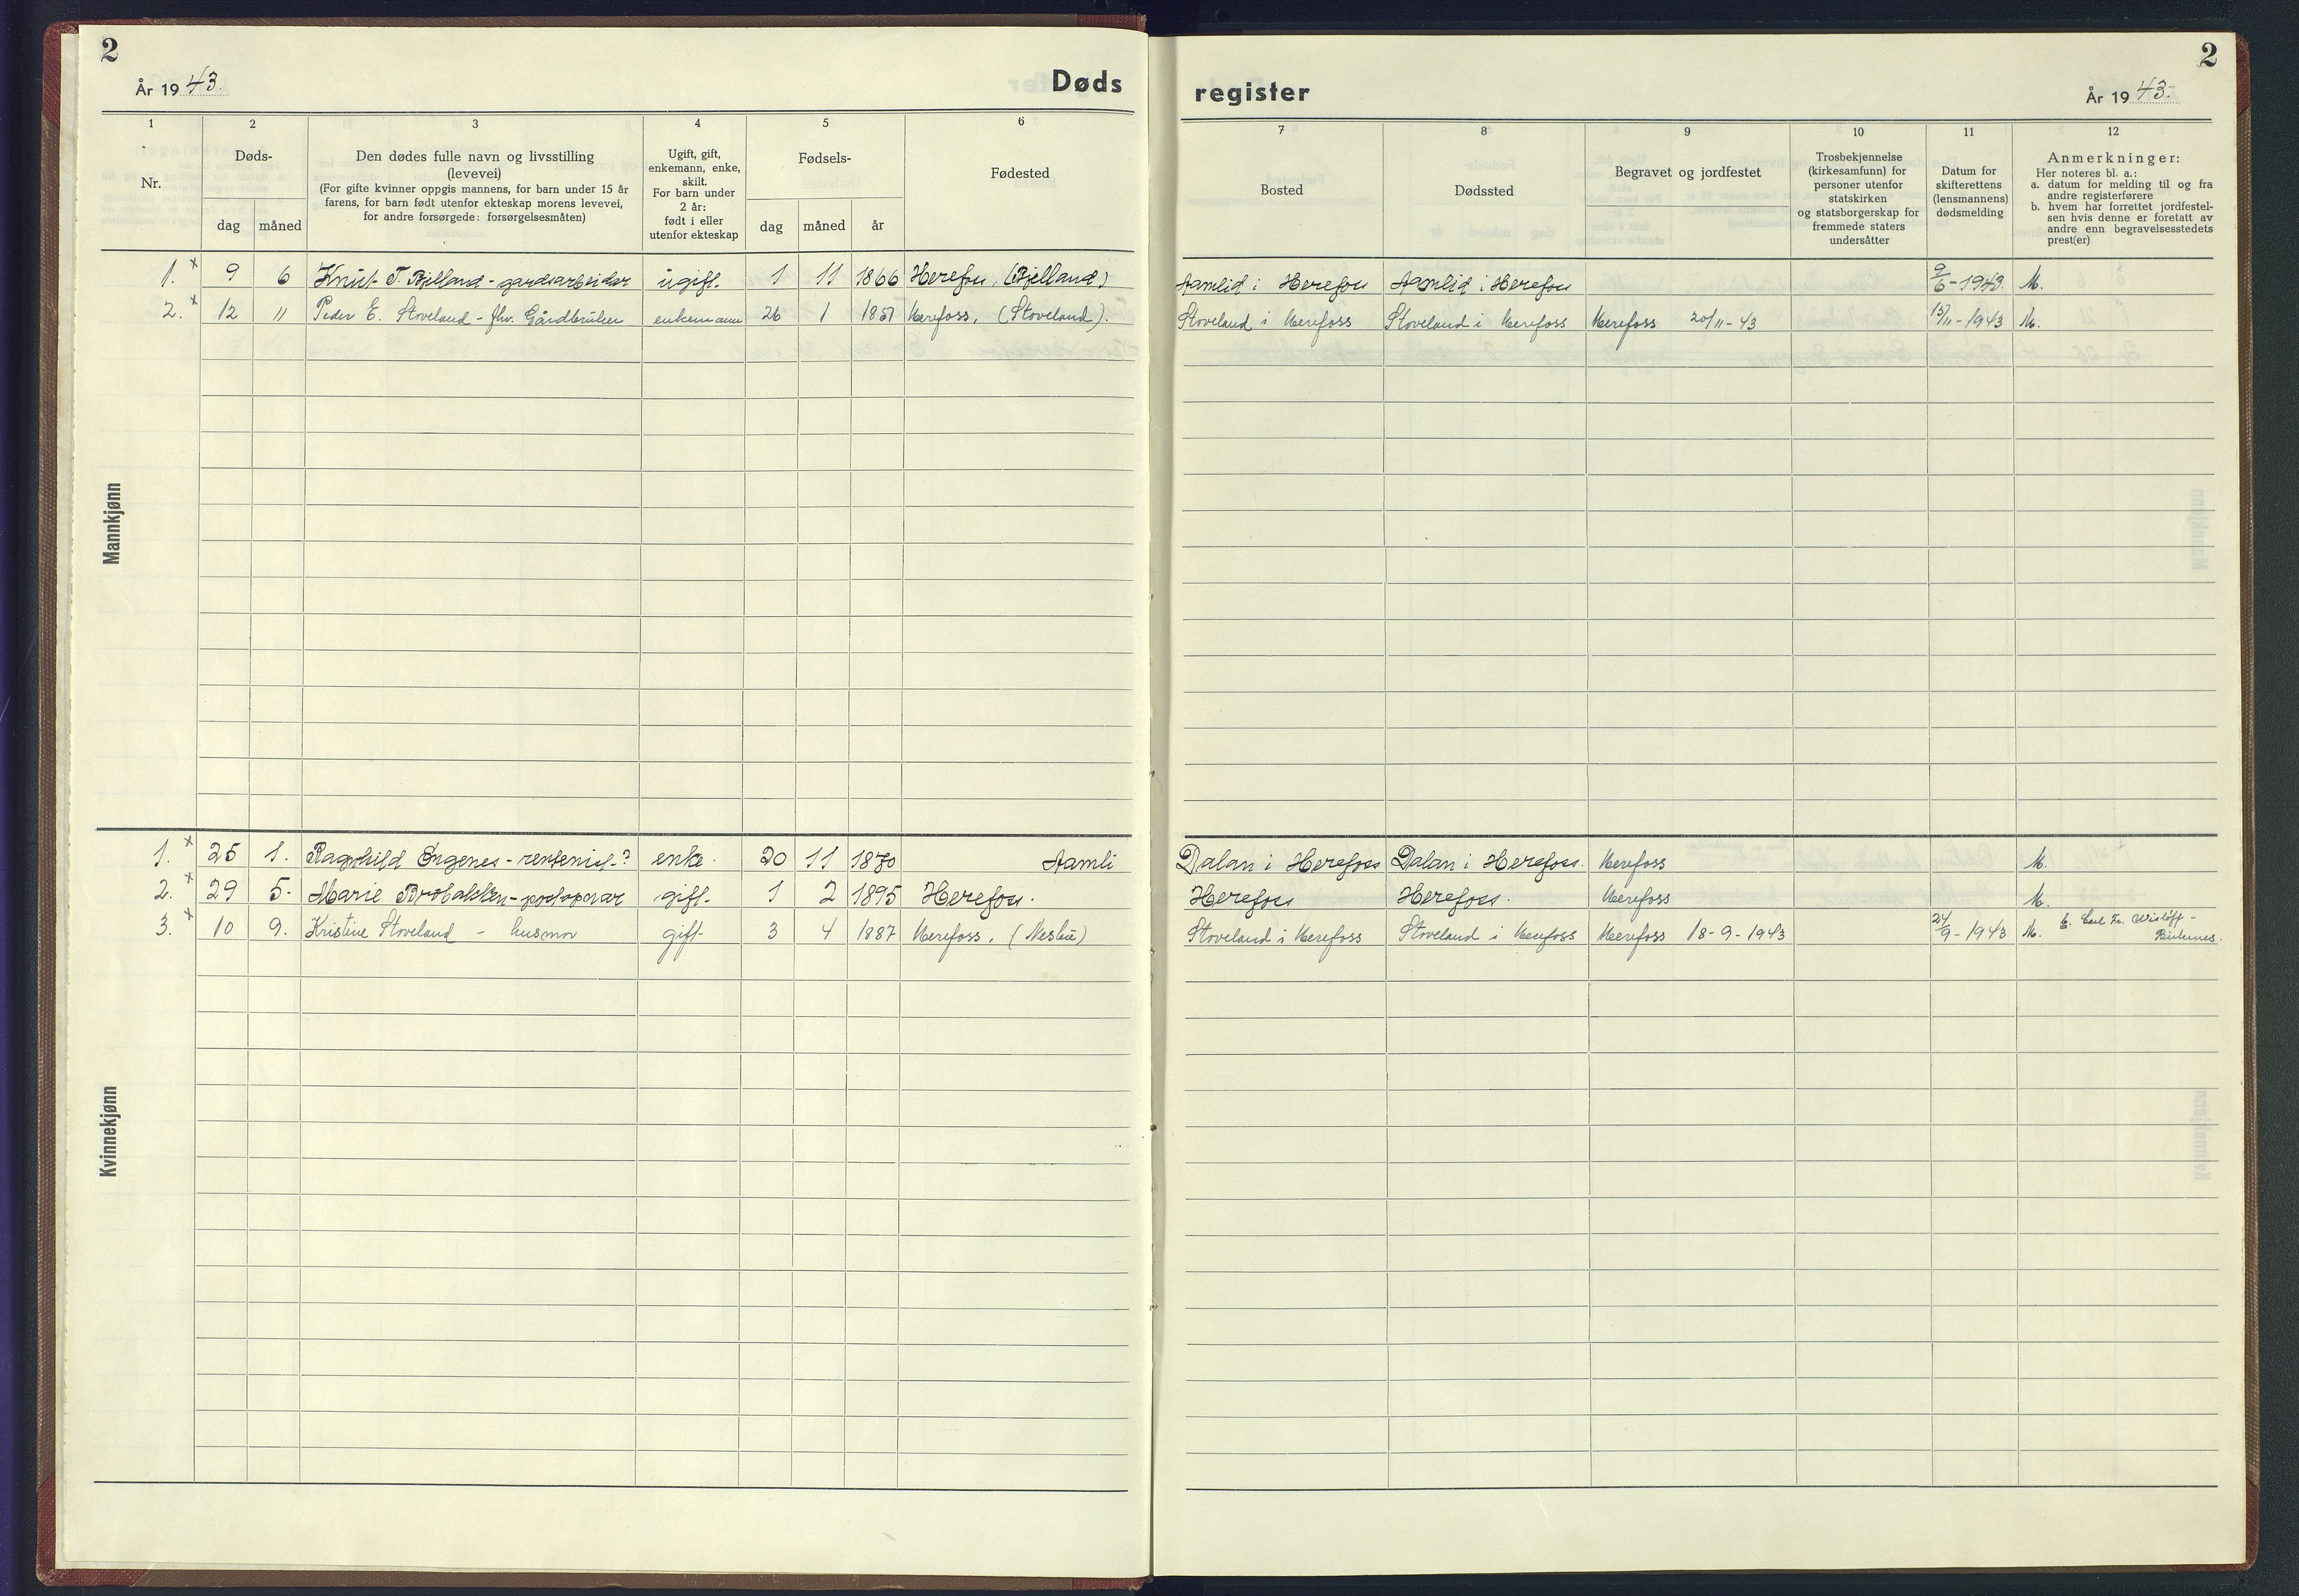 2
År 1943.
Døds
1
2
3
4
5
6
Nr.
Døds-
dag
måned
Den dødes fulle navn og livsstilling
(levevei)
(For gifte kvinner oppgis mannens, for barn under 15 år
farens, for barn født utenfor ekteskap morens levevei,
for andre forsørgede: forsørgelsesmåten)
Ugift, gift,
enkemann, enke,
skilt.
For barn under
2 år:
født i eller
utenfor ekteskap
Fødsels-
dag
måned
år
Fødested
Mannkjønn
1. x 9 6 Knut T. Bjelland - gardsarbeider ugift. 1 11 1866 Herefoss (Bjelland)
2. x 12 11 Peder E. Stoveland - fhv. Gårdbruker enkemann 26 1 1851 Herefoss, (Stoveland).
Kvinnekjønn
1. x 25 1. Ragnhild Engenes - rentenist-? enke. 20 11 1870 Aamli
2. x 29 5- Marie Brobakken - postopnar gift- 1 2 1895 Herefoss.
3. x 10 9. Kristine Stoveland - husmor gift- 3 4 1887 Herefoss, (Neslie)
register
2
År 1943.
7
8
9
10
11
12
Bosted
Dødssted
Begravet og jordfestet
Trosbekjennelse
(kirkesamfunn) for
personer utenfor
statskirken
og statsborgerskap for
fremmede staters
undersåtter
Datum for
skifterettens
(lensmannens)
dødsmelding
Anmerkninger:
Her noteres bl. a.:
a. datum for melding til og fra
andre registerførere
b. hvem har forrettet jordfestel-
sen hvis denne er foretatt av
andre enn begravelsesstedets
prest(er)
Aamlid i Herefoss Aamlid i Herefoss 9/6-1943. M.
Stoveland i Herefoss Stoveland i Herefoss Herefoss 20/11-43 15/11-1943 M.
Dalan i Herefoss Dalan i Herefoss. Herefoss M.
Herefoss Herefoss. Herefoss M.
Stoveland i Herefoss Stoveland i Herefoss Herefoss 18-9-1943 24/9-1943 M. b. Carl Fr. Wisløff -
Birkenes.